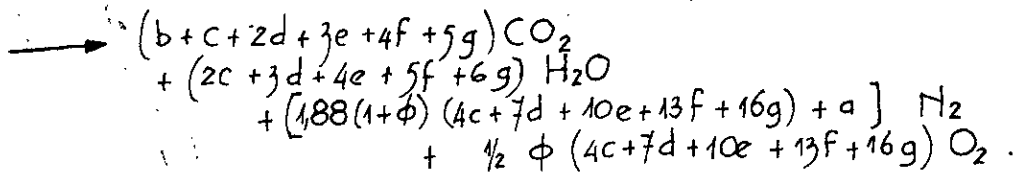 ⟶ (b + c + 2d + 3e + 4f + 5g) CO₂
+ (2c + 3d + 4e + 5f + 6g) H₂O
+ [1,88 (1+ϕ) (4c + 7d + 10e + 13f + 16g) + a] N₂
+ ½ ϕ (4c + 7d + 10e + 13f + 16g) O₂ .